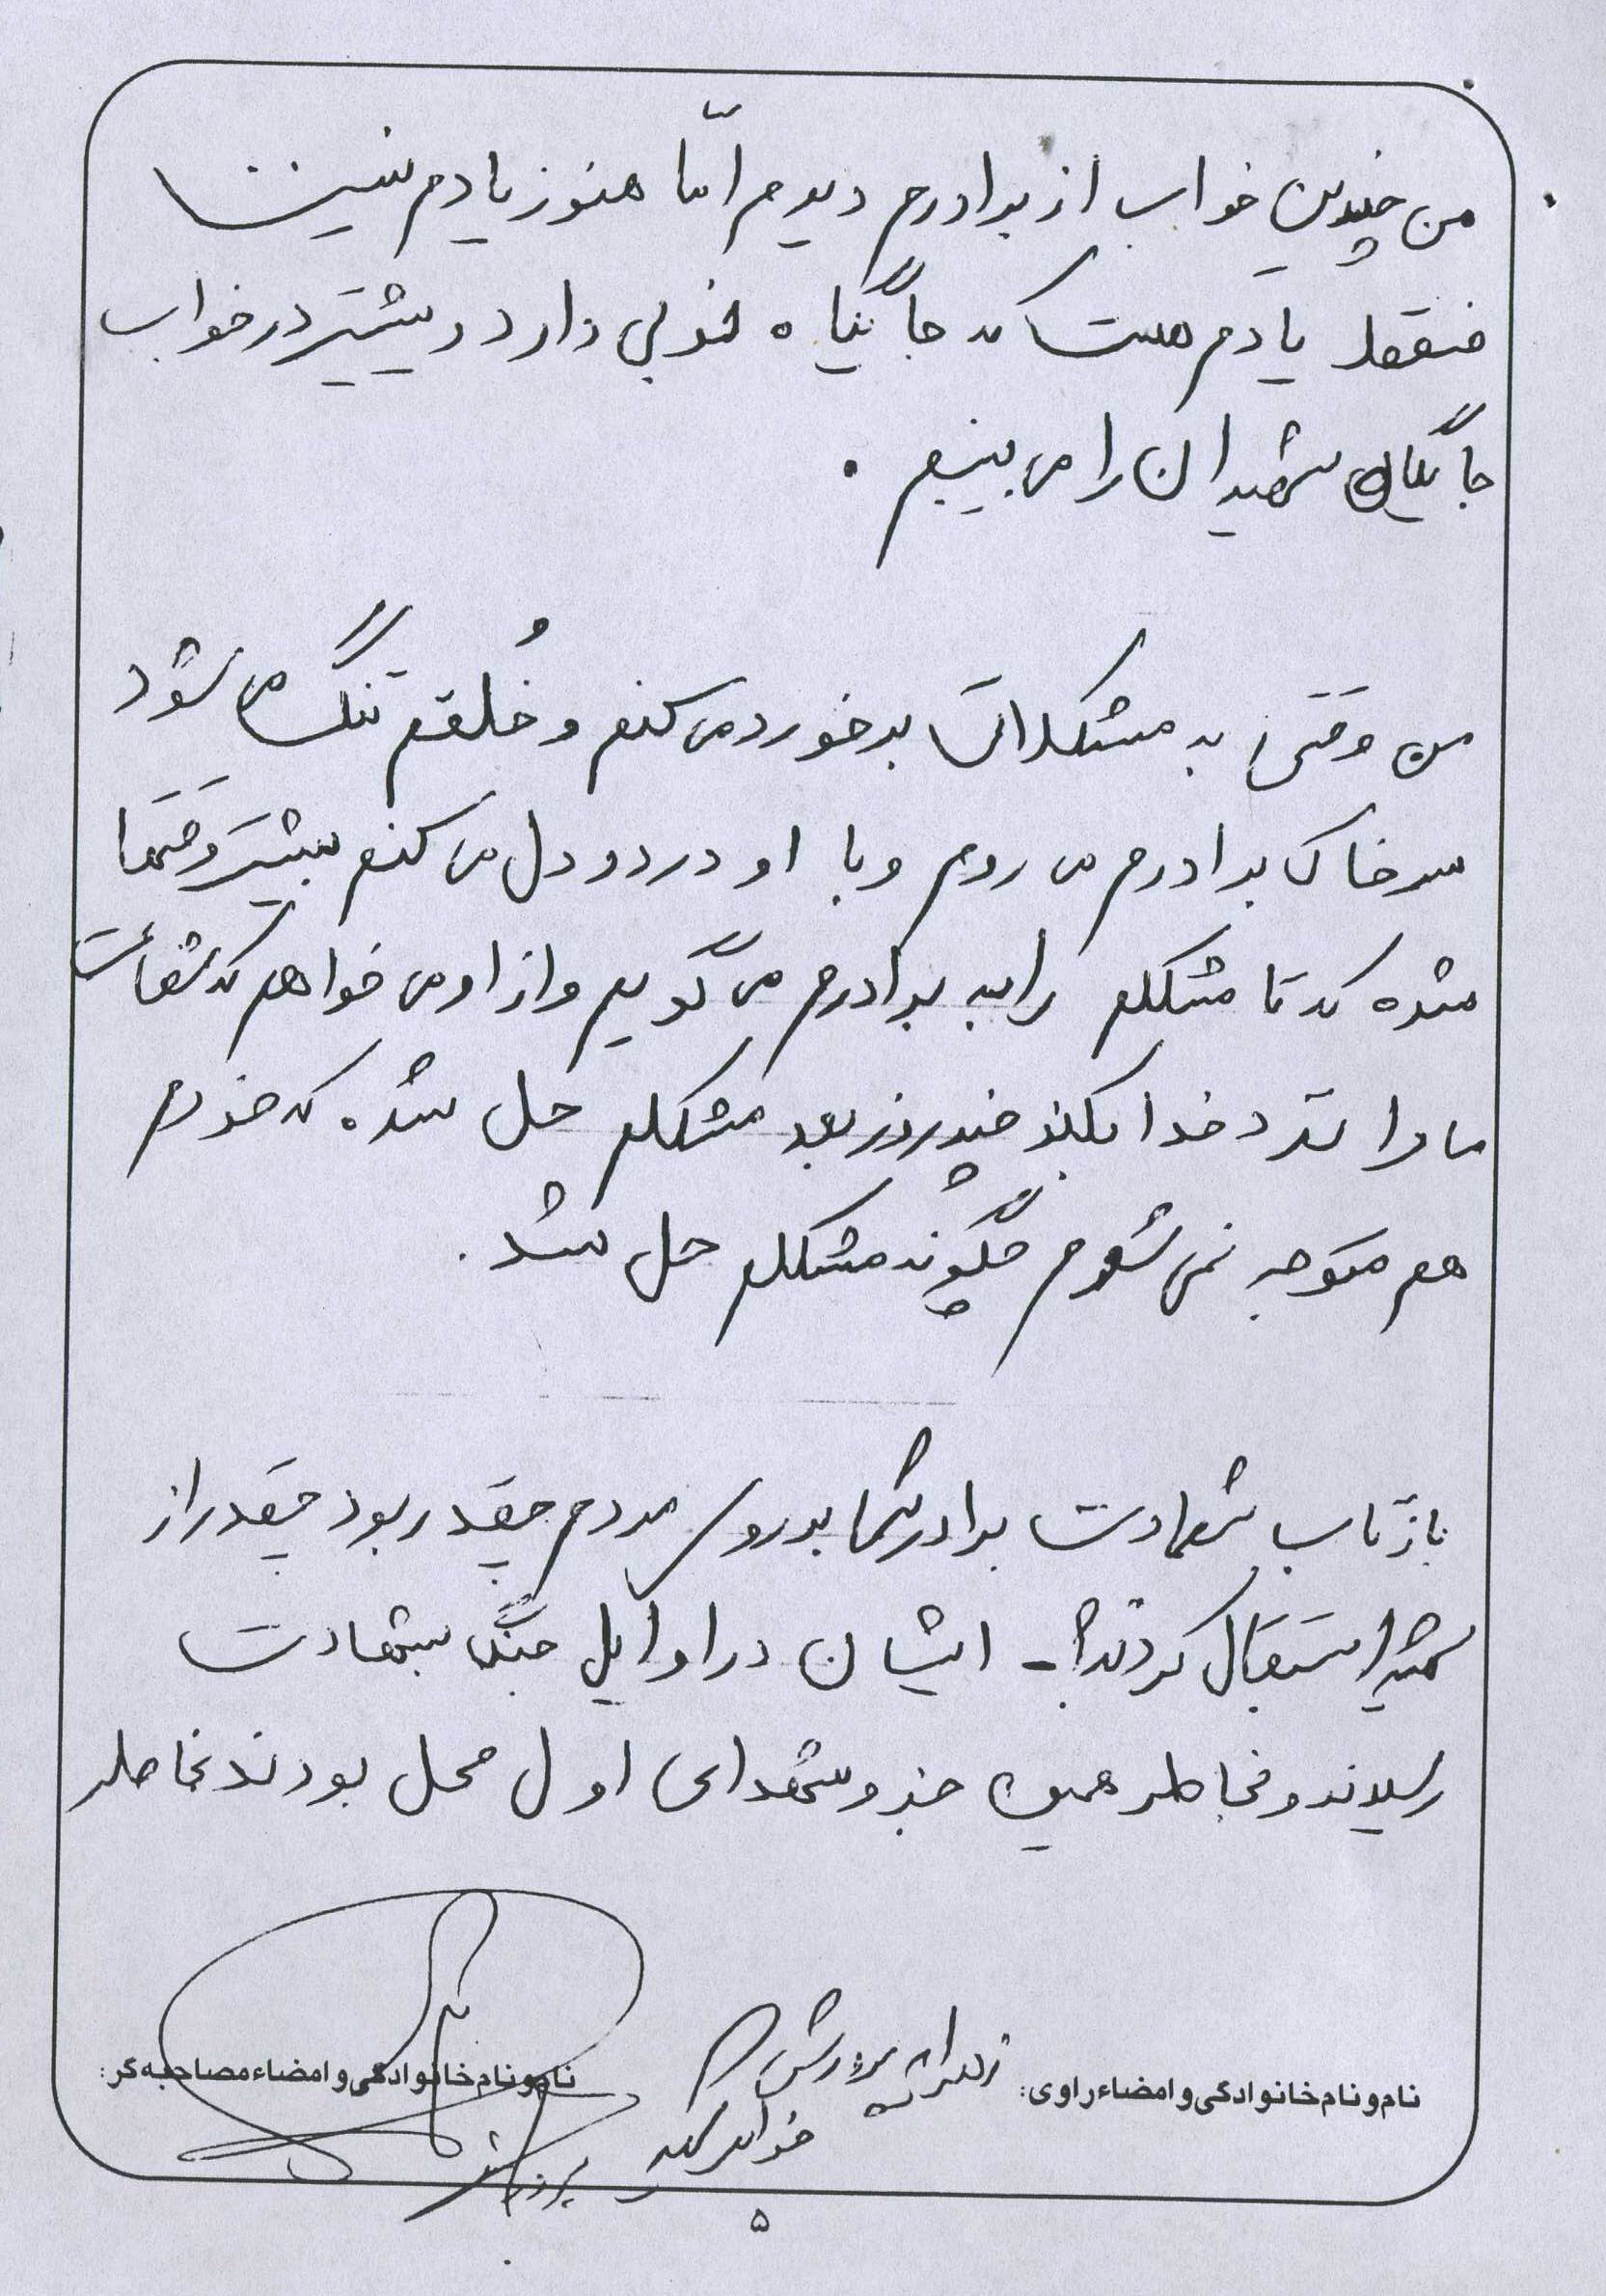 من چندین خواب از برادرم دیدم امّا هنوز یادم نیست
فقط یادم هست که جایگاه خوبی دارد و بیشتر در خواب
جایگاه شهیدان را می بینم .
من وقتی به مشکلات برخورد می کنم و خُلقم تنگ می شود
سر خاک برادرم می روم و با او درد و دل می کنم بیشتر وقتها
شده که تا مشکلم را به برادرم می گویم و از او می خواهم که شفاعت
ما را نزد خدا بکند چند روز بعد مشکلم حل شده که خودم
هم متوجه نمی شوم چگونه مشکلم حل شد .
بازتاب شهادت برادر شما بر روی مردم چقدر بود چقدر از
شهید استقبال کردند؟ - ایشان در اوایل جنگ بشهادت
رسیدند و بخاطر همین جزو شهدای اول محل بودند بخاطر
نام و نام خانوادگی و امضاء راوی: پرورش
خواهر شهید
نام و نام خانوادگی و امضاء مصاحبه گر:
۵